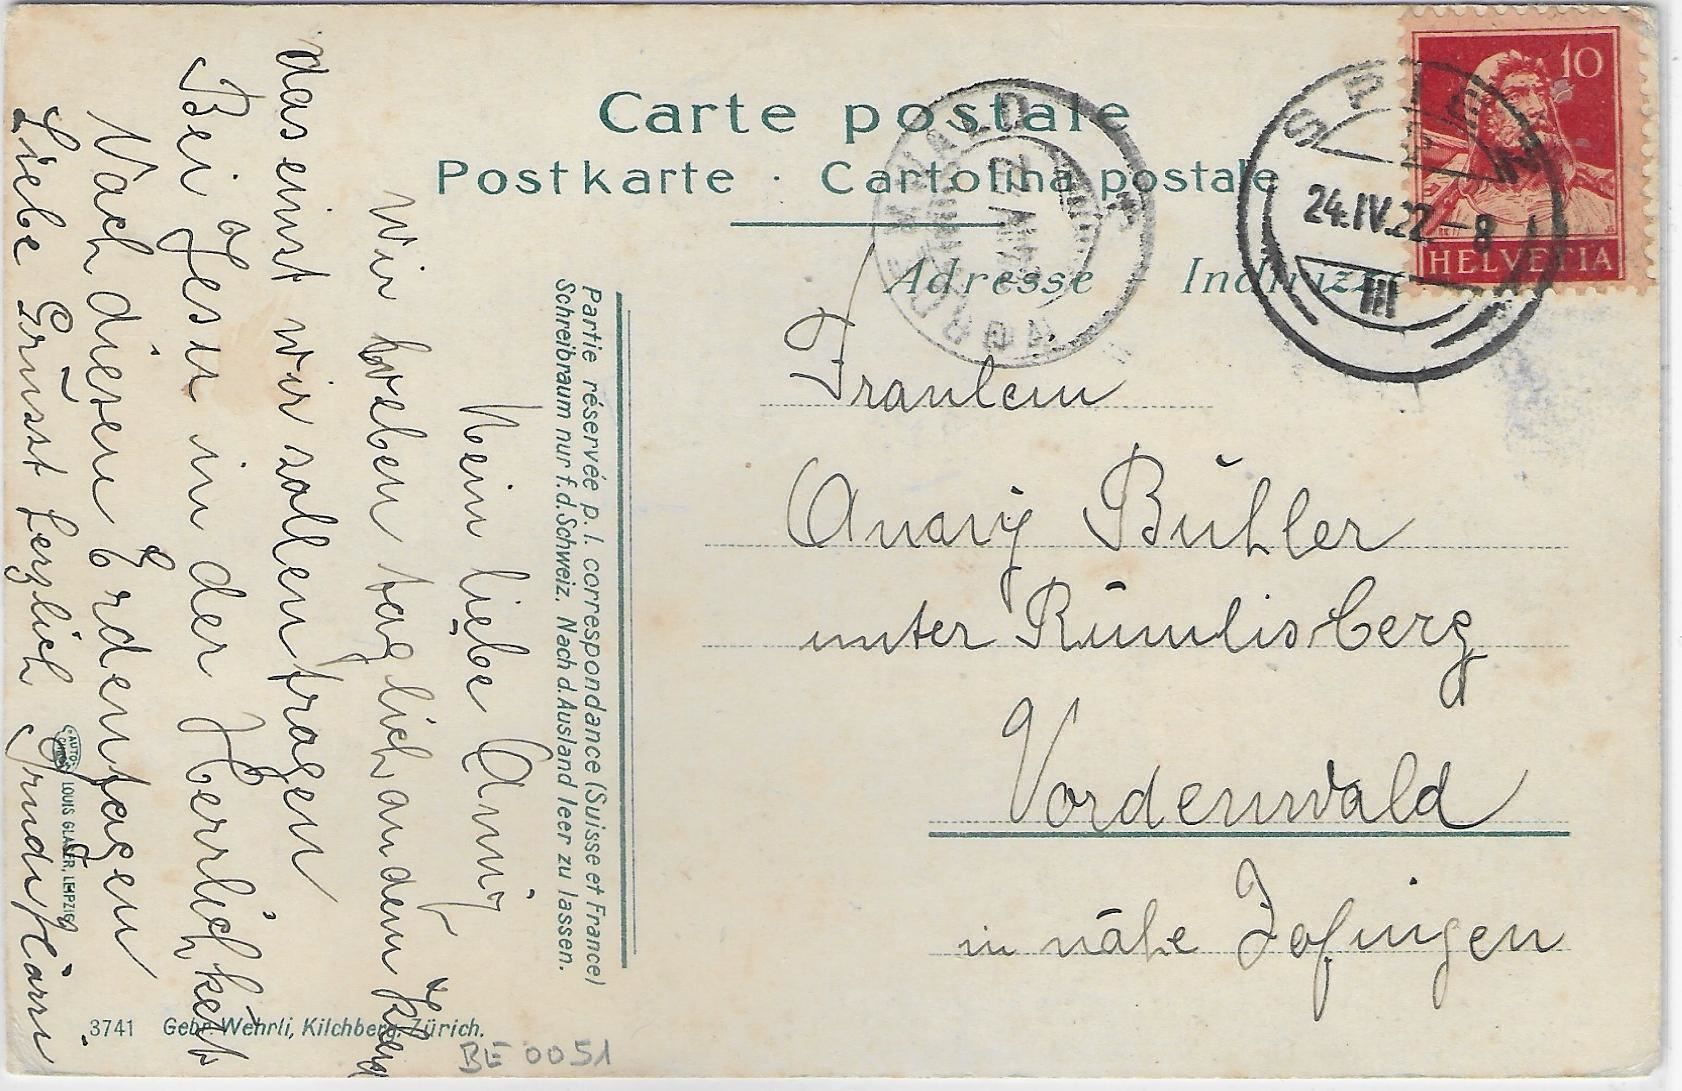 Carte postale
Postkarte · Cartolina postale
Adresse Indirizzo
10
HELVETIA
SPIEZ
24.IV.22.-8
III
VORDEMWALD
Fräulein
Anny Bühler
unter Rümlisberg
Vordemwald
in nähe Zofingen
Partie réservée p. l. correspondance (Suisse et France)
Schreibraum nur f. d. Schweiz. Nach d. Ausland leer zu lassen.
Mein liebe Anny
Wir weben täglich an dem Kleid
das einst wir sollen tragen
Bei Jesu in der Herrlichkeit
Nach diesen Erdentagen
Liebe Grüsst herzlich Trudi
AUTO-CHROM LOUIS GLASER, LEIPZIG
3741 Gebr. Wehrli, Kilchberg, Zürich.
BE 0051